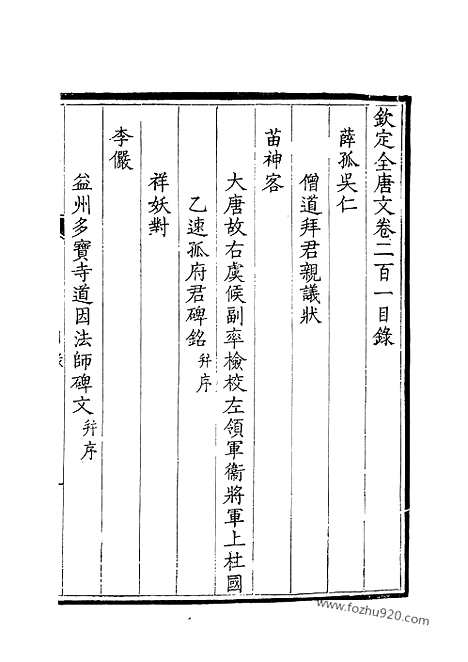 欽定全唐文卷二百一目錄
薛孤吳仁
僧道拜君親議狀
苗神客
大唐故右虞候副率檢校左領軍衞將軍上柱國
乙速孤府君碑銘并序
祥妖對
李儼
益州多寶寺道因法師碑文并序
www.fozhu920.com